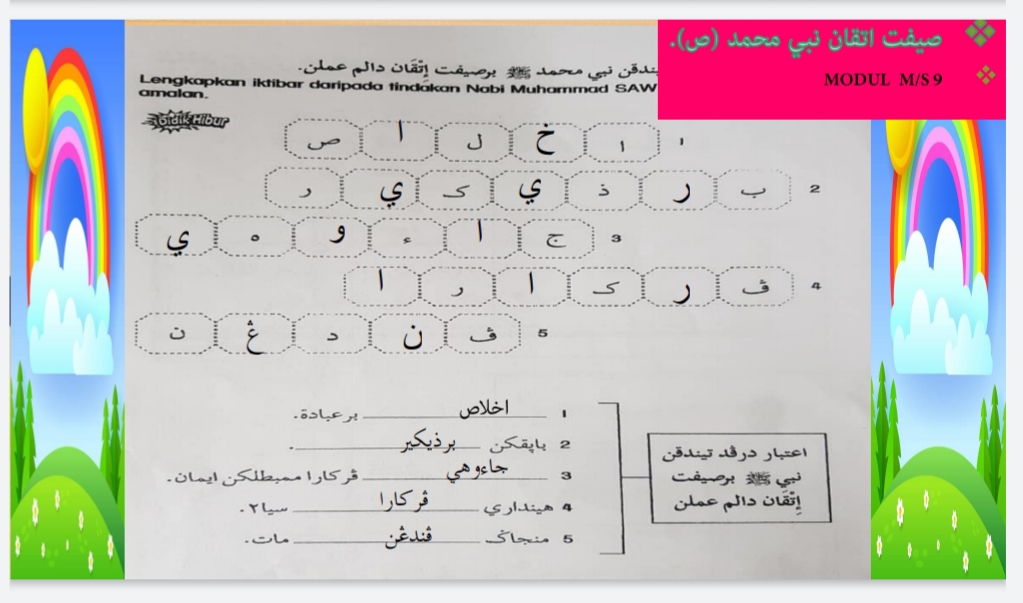 صيفت اتقان نبي محمد (ص).
MODUL M/S 9
يندقن نبي محمد ﷺ برصيفت إتقان دالم عملن.
Lengkapkan iktibar daripada tindakan Nabi Muhammad SAW
amalan.
Bidik Hibur
١ ا خ ل ا ص
2 ب ر ذ ي ک ي ر
3 ج ا ء و ه ي
4 ڤ ر ک ا ر ا
5 ڤ ن د ڠ ن
1 اخلاص برعبادة.
2 باڽقکن برذيکير.
3 جاءوهي ڤرکارا ممبطلکن ايمان.
4 هينداري ڤرکارا سيا٢.
5 منجاݢ ڤندڠن مات.
اعتبار درڤد تيندقن
نبي ﷺ برصيفت
إتقان دالم عملن